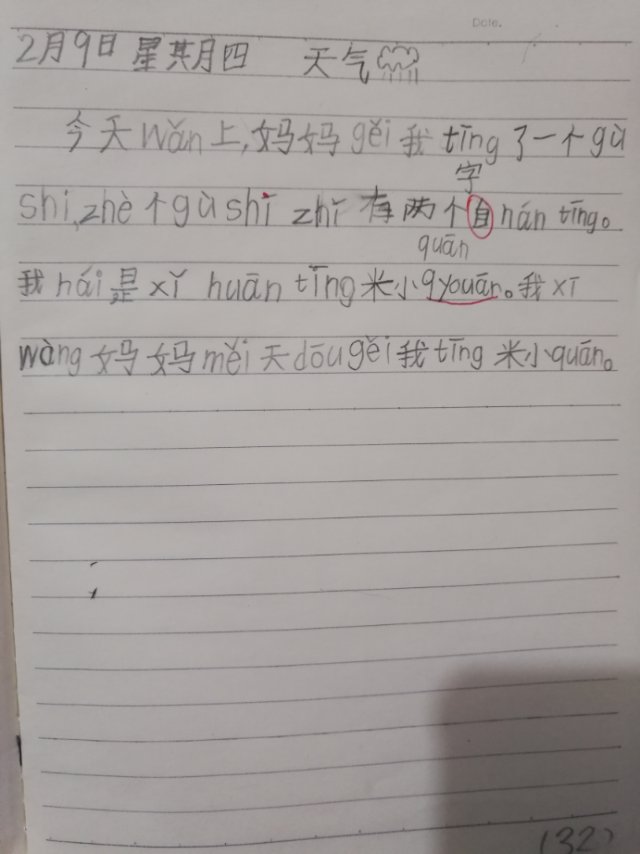 Date.
2月9日 星其月四 天气
今天wǎn上,妈妈gěi我tīng了一个gù
字
shi,zhè个gùshī zhī有两个自nán tīng。
quān
我hái是xǐ huān tīng米小qyouān。我xī
wàng妈妈měi天dōugěi我tīng米小quān。
(32)